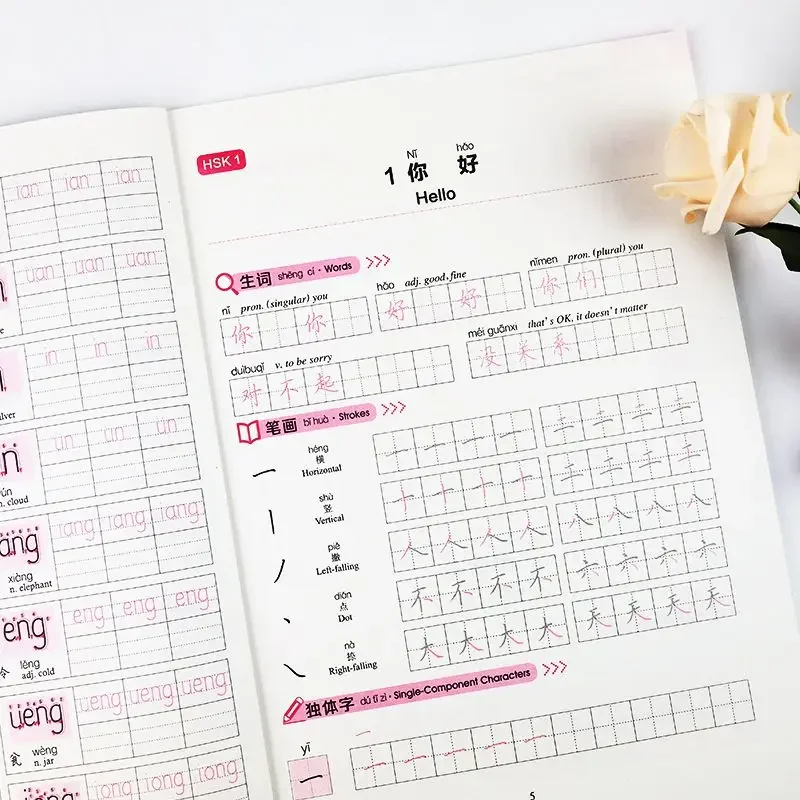 ian ian ian
uan uan uan
in in in
ilver
un un un
n. cloud
iang iang iang
xiàng
n. elephant
eng eng eng
lěng
adj. cold
ueng ueng ueng ueng
wèng
n. jar
iong iong iong
HSK 1
Nǐ hǎo
1 你 好
Hello
生词 shēng cí · Words
nǐ pron. (singular) you
你 你
hǎo adj. good, fine
好 好
nǐmen pron. (plural) you
你 们
duìbuqǐ v. to be sorry
对 不 起
méi guānxi that's OK, it doesn't matter
没 关 系
笔画 bǐ huà · Strokes
héng
横
Horizontal
一 一 一 一 二 二 二 二
shù
竖
Vertical
十 十 十 十
piě
撇
Left-falling
人 人 人 人 八 八 八 八
diǎn
点
Dot
不 不 不 不 六 六 六 六
nà
捺
Right-falling
大 大 大 大 天 天 天 天
独体字 dú tǐ zì · Single-Component Characters
yī
一 一 一 一 一 一
5